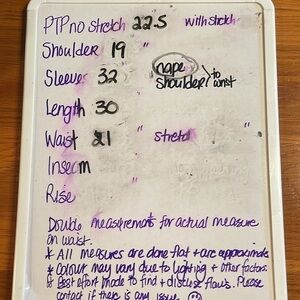 PTP no stretch 22.5 " with stretch
Shoulder 19 "
Sleeves 32 nape shoulder to wrist
Length 30
Waist 21 " stretch "
Inseam
Rise
Double measurements for actual measure
on waist.
* All measures are done flat + are approximate
* Colour may vary due to lighting + other factors.
* Best effort made to find + disclose flaws. Please
contact if there is any issue ☺